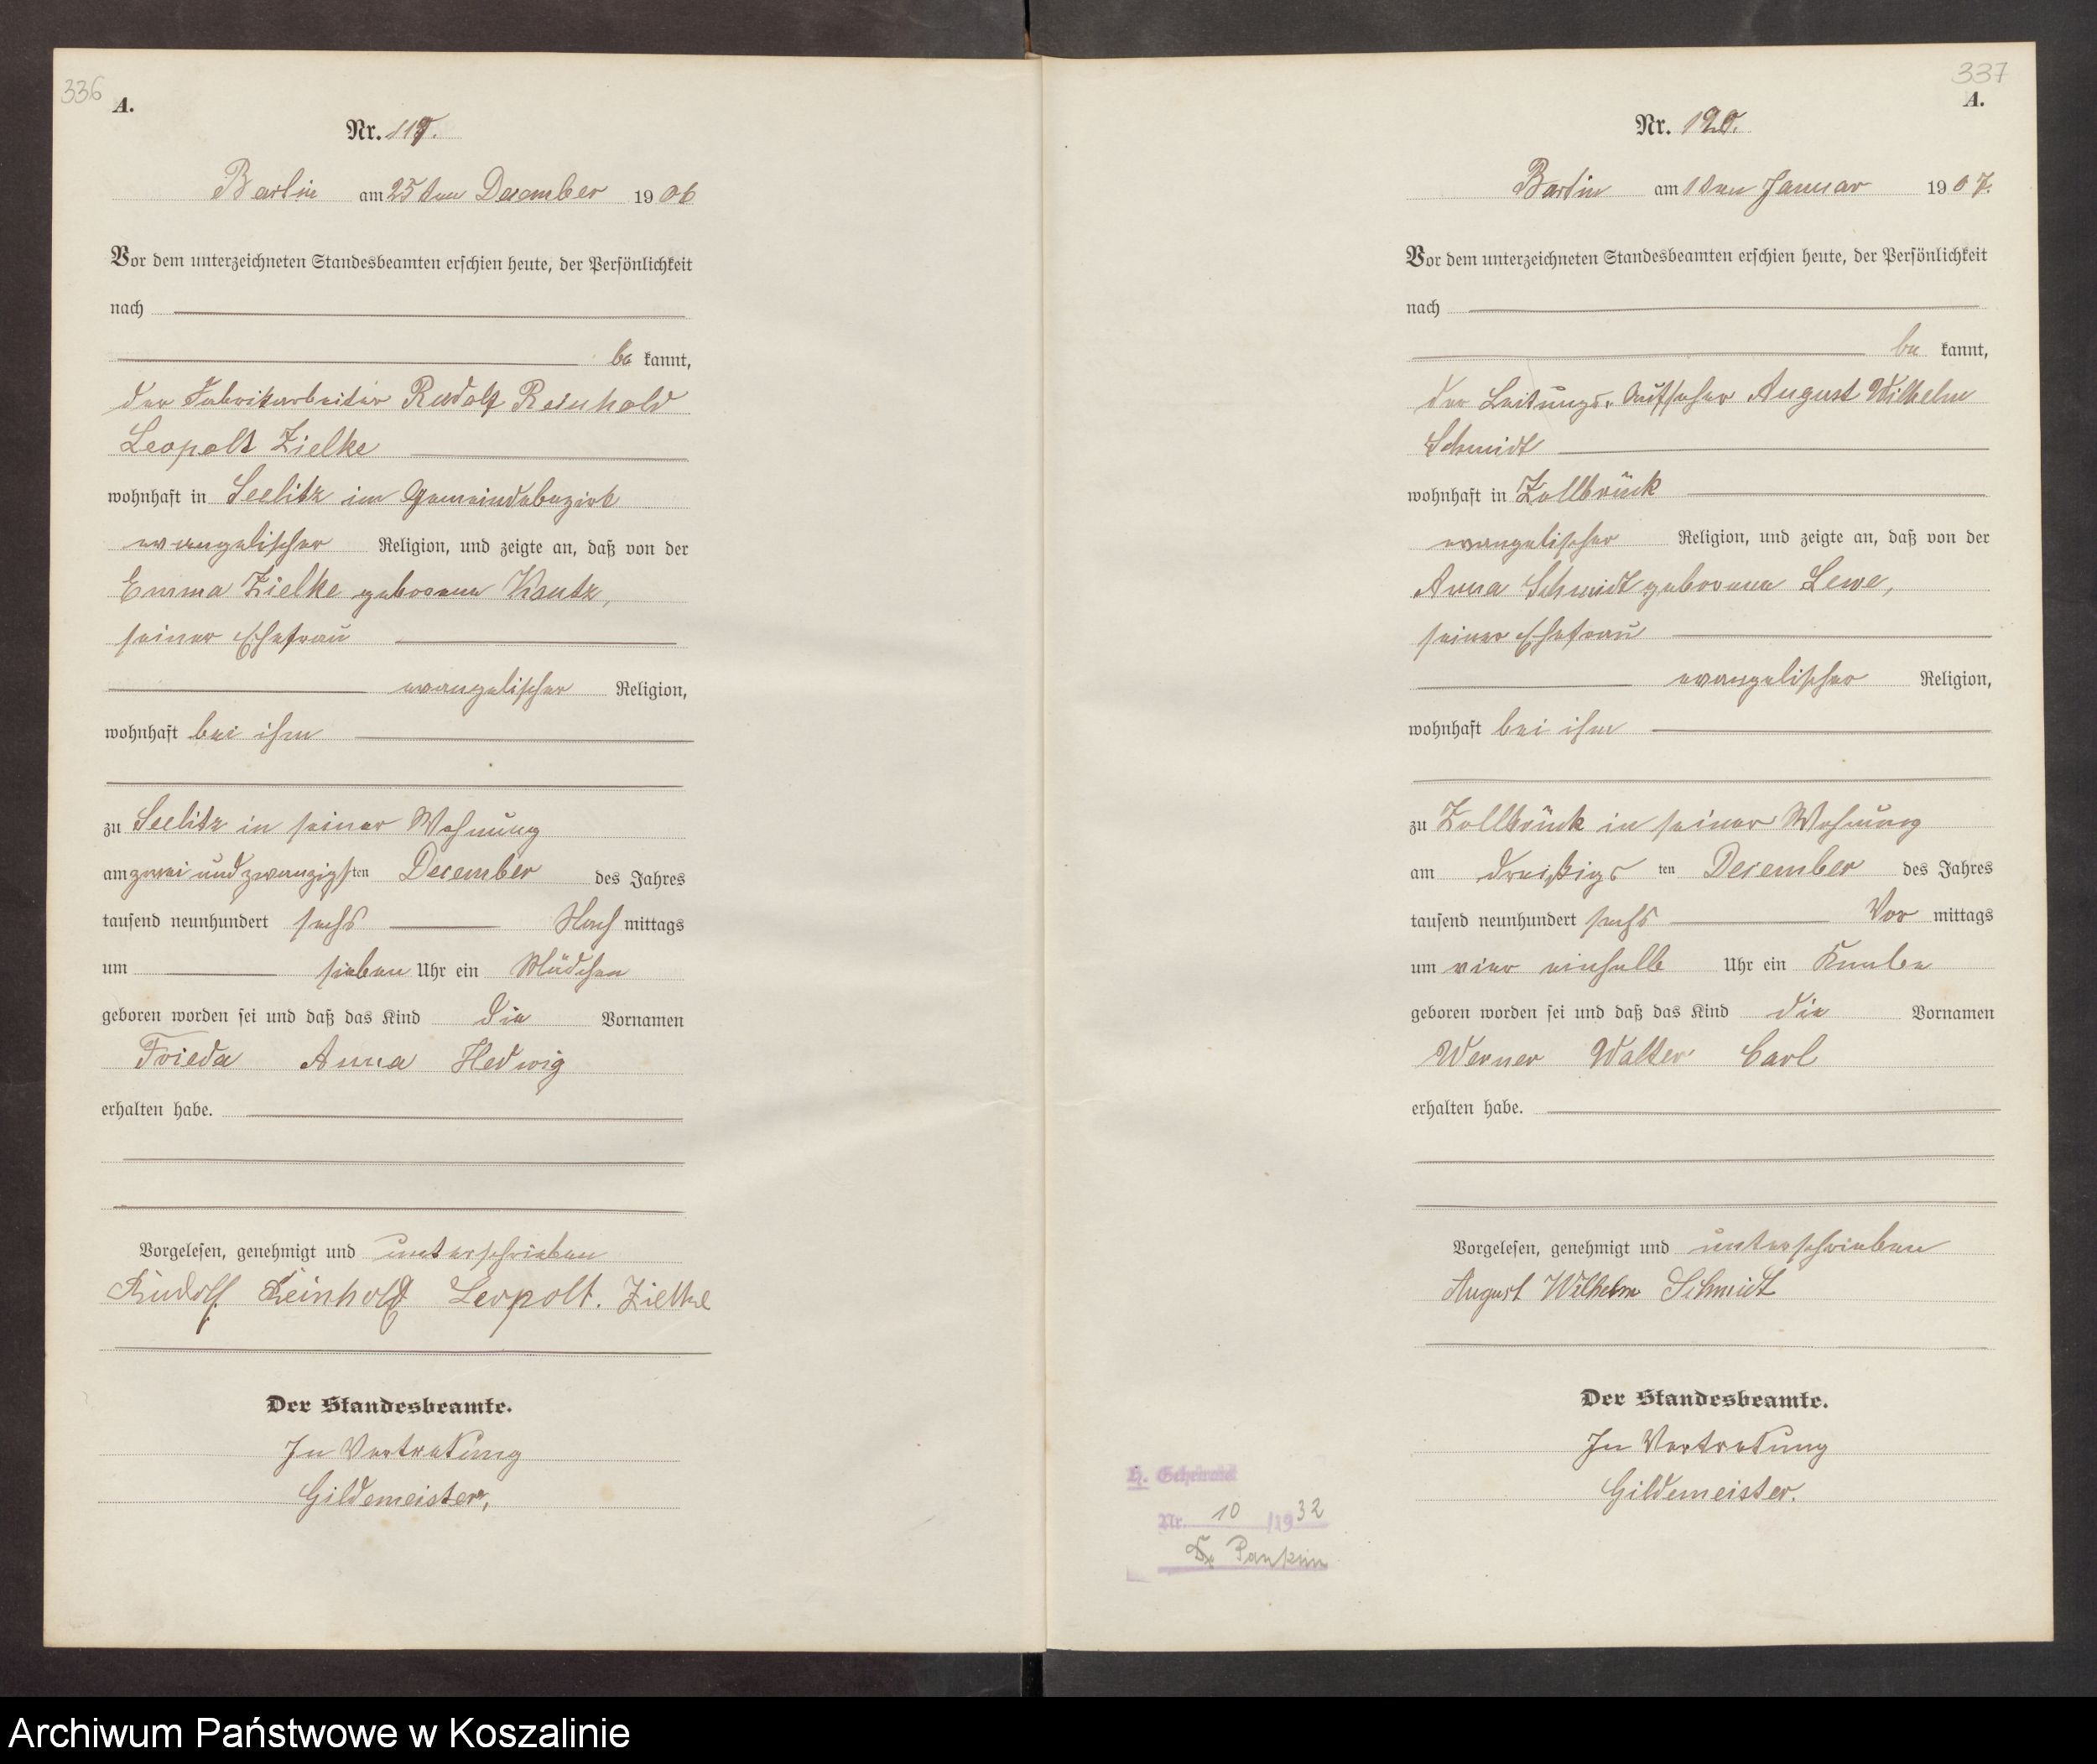 336
A.
Nr. 119.
Bartin am 25ten December 1906
Vor dem unterzeichneten Standesbeamten erschien heute, der Persönlichkeit
nach
be kannt,
der Fabrikarbeiter Rudolf Reinhold
Leopolt Zielke
wohnhaft in Seelitz im Gemeindebezirk
evangelischer Religion, und zeigte an, daß von der
Emma Zielke geborene Kautz,
seiner Ehefrau
evangelischer Religion,
wohnhaft bei ihm
zu Seelitz in seiner Wohnung
am zwei und zwanzigsten December des Jahres
tausend neunhundert sechs Nach mittags
um sieben Uhr ein Mädchen
geboren worden sei und daß das Kind die Vornamen
Frieda Anna Hedwig
erhalten habe.
Vorgelesen, genehmigt und unterschrieben
Rudolf Reinhold Leopolt. Zielke
Der Standesbeamte.
In Vertretung
Gildemeister,
337
A.
Nr. 120.
Bartin am 1ten Januar 1907.
Vor dem unterzeichneten Standesbeamten erschien heute, der Persönlichkeit
nach
be kannt,
der Leitungs-Aufseher August Wilhelm
Schmidt
wohnhaft in Zollbrück
evangelischer Religion, und zeigte an, daß von der
Anna Schmidt geborene Lewe,
seiner Ehefrau
evangelischer Religion,
wohnhaft bei ihm
zu Zollbrück in seiner Wohnung
am dreißigs ten December des Jahres
tausend neunhundert sechs Vor mittags
um vier einhalb Uhr ein Knabe
geboren worden sei und daß das Kind die Vornamen
Werner Walter Carl
erhalten habe.
Vorgelesen, genehmigt und unterschrieben
August Wilhelm Schmidt
Der Standesbeamte.
In Vertretung
Gildemeister.
Nr. 10 /1932
Archiwum Państwowe w Koszalinie